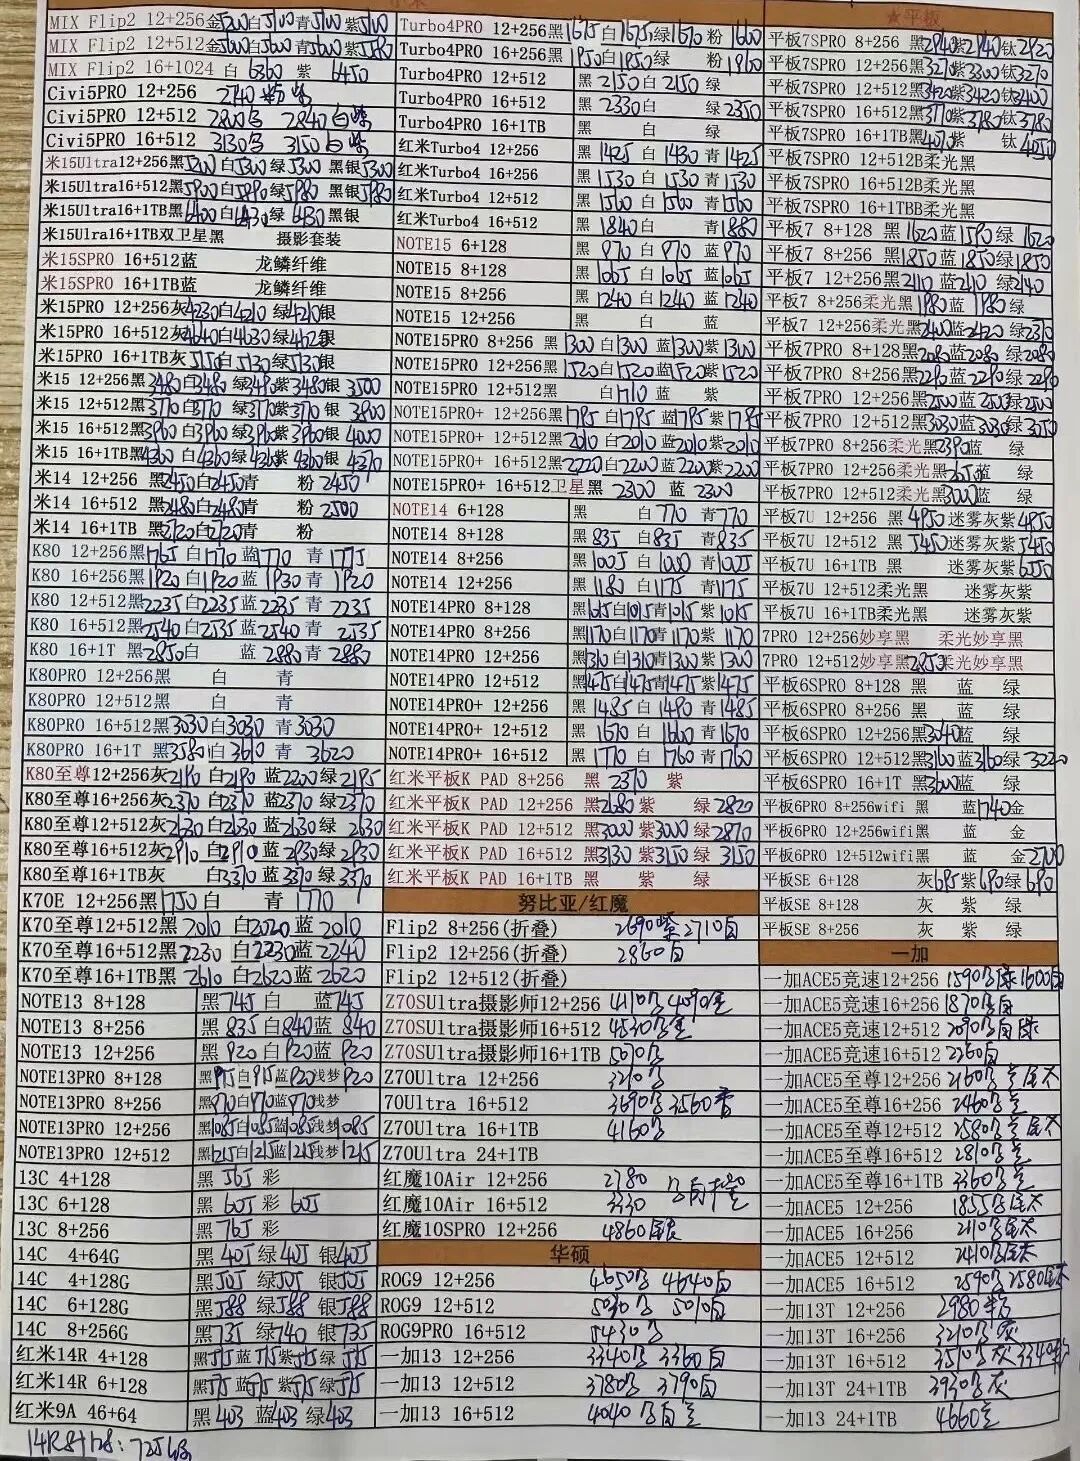 MIX Flip2 12+256金5200白5100青5100紫5100
MIX Flip2 12+512金5600白5600青5600紫5580
MIX Flip2 16+1024 白 6360 紫 6450
Civi5PRO 12+256 2740
Civi5PRO 12+512 2800 2840白
Civi5PRO 16+512 3130 3150白
米15Ultra12+256黑5200白5300绿5300 黑银5300
米15Ultra16+512黑5900白5890绿5980 黑银5980
米15Ultra16+1TB黑6400白6430绿6430黑银
米15Ulra16+1TB双卫星黑 摄影套装
米15SPRO 16+512蓝 龙鳞纤维
米15SPRO 16+1TB蓝 龙鳞纤维
米15PRO 12+256灰4230白4210绿4210银
米15PRO 16+512灰4640白4030绿4620银
米15PRO 16+1TB灰5150白5130绿5130银
米15 12+256黑3480白3480绿3480紫3480银 3500
米15 12+512黑3770白3770 绿3770紫3770 银 3800
米15 16+512黑3960白3960 绿3960紫3960 银 4000
米15 16+1TB黑4360 白4360绿4360紫4360 银 4370
米14 12+256 黑2450白2450青 粉 2450
米14 16+512 黑2480白2480青 粉 2500
米14 16+1TB 黑2720白2720青 粉
K80 12+256黑1765 白1770 蓝1770 青 1775
K80 16+256黑1920白1920蓝 1930青 1920
K80 12+512黑2235白2235蓝 2235 青 2235
K80 16+512黑2540白2535蓝 2540 青 2535
K80 16+1T 黑2850白 蓝 2880青 2880
K80PRO 12+256黑 白 青
K80PRO 12+512黑 白 青
K80PRO 16+512黑3030白3030 青 3030
K80PRO 16+1T 黑3580白3610 青 3620
K80至尊12+256灰2190 白2190 蓝2200绿2195
K80至尊16+256灰2370 白2370 蓝2370 绿2370
K80至尊12+512灰2630 白2630 蓝2630绿 2630
K80至尊16+512灰2910 白2910 蓝2930绿 2930
K80至尊16+1TB灰 白3370蓝3370绿 3370
K70E 12+256黑1750白 青 1770
K70至尊12+512黑 2010 白2020 蓝 2010
K70至尊16+512黑2230 白2230蓝 2240
K70至尊16+1TB黑2610 白2620蓝 2620
NOTE13 8+128 黑745白 蓝745
NOTE13 8+256 黑835白840蓝 840
NOTE13 12+256 黑 920白920蓝 920
NOTE13PRO 8+128 黑915白915蓝920浅梦920
NOTE13PRO 8+256 黑970白970蓝970浅梦
NOTE13PRO 12+256 黑1085白1085蓝1085浅梦1085
NOTE13PRO 12+512 黑1215白1215蓝1215浅梦1215
13C 4+128 黑 565 彩
13C 6+128 黑 605彩 605
13C 8+256 黑 765彩
14C 4+64G 黑 405绿405 银405
14C 4+128G 黑505绿505 银505
14C 6+128G 黑588 绿588 银588
14C 8+256G 黑735 绿740 银735
红米14R 4+128 黑515蓝515紫515绿515
红米14R 6+128 黑575蓝575紫575绿575
红米9A 46+64 黑 403 蓝403 绿403
14R8+128:725绿
Turbo4PRO 12+256黑1675白1675绿1670粉 1660
Turbo4PRO 16+256黑1950白1950绿 粉1960
Turbo4PRO 12+512 黑2150白2150绿
Turbo4PRO 16+512 黑2330白 绿2350
Turbo4PRO 16+1TB 黑 白 绿
红米Turbo4 12+256 黑1425 白 1430 青1425
红米Turbo4 16+256 黑1530 白 1530 青1530
红米Turbo4 12+512 黑1560 白1560 青1560
红米Turbo4 16+512 黑1840白 青1880
NOTE15 6+128 黑 970白 970 蓝970
NOTE15 8+128 黑 1065白1065 蓝1065
NOTE15 8+256 黑1240白1240 蓝1240
NOTE15 12+256 黑 白 蓝
NOTE15PRO 8+256 黑1300 白1300 蓝1300紫1300
NOTE15PRO 12+256黑1520白1520 蓝1520紫1520
NOTE15PRO 12+512黑 白1710蓝 紫
NOTE15PRO+ 12+256黑1795白1795蓝1795紫1795
NOTE15PRO+ 12+512黑2010白2010蓝2010紫2010
NOTE15PRO+ 16+512黑2220白2200蓝2200紫2200
NOTE15PRO+ 16+512卫星黑 2300 蓝 2300
NOTE14 6+128 黑 白 770 青770
NOTE14 8+128 黑835 白835 青835
NOTE14 8+256 黑1005 白 1000 青1005
NOTE14 12+256 黑 1180 白1175 青1175
NOTE14PRO 8+128 黑1015白1015青1015紫1015
NOTE14PRO 8+256 黑1170白1170青1170紫 1170
NOTE14PRO 12+256 黑1310白1310青1300紫1300
NOTE14PRO 12+512 黑1475白1475青1475紫1475
NOTE14PRO+ 12+256 黑1485 白1490 青1485
NOTE14PRO+ 12+512 黑1670 白1660青1670
NOTE14PRO+ 16+512 黑1770 白1760青1760
红米平板K PAD 8+256 黑 2370 紫
红米平板K PAD 12+256 黑2680紫 绿2820
红米平板K PAD 12+512 黑3000 紫3000 绿2870
红米平板K PAD 16+512 黑3130 紫3150 绿 3150
红米平板K PAD 16+1TB 黑 紫 绿
努比亚/红魔
Flip2 8+256(折叠) 2690 2710白
Flip2 12+256(折叠) 2860白
Flip2 12+512(折叠)
Z70SUltra摄影师12+256 4110 4090
Z70SUltra摄影师16+512 4530
Z70SUltra摄影师16+1TB 5070
Z70Ultra 12+256 3210
70Ultra 16+512 3690 3560
Z70Ultra 16+1TB 4160
Z70Ultra 24+1TB
红魔10Air 12+256 2780
红魔10Air 16+512 3330
红魔10SPRO 12+256 4860
华硕
ROG9 12+256 4650 4640白
ROG9 12+512 5030 5010白
ROG9PRO 16+512 5430
一加13 12+256 3340 3360白
一加13 12+512 3780 3790白
一加13 16+512 4040
★平板
平板7SPRO 8+256 黑2940紫2940钛2920
平板7SPRO 12+256黑3270紫3300钛3270
平板7SPRO 12+512黑3420紫3420钛3400
平板7SPRO 16+512黑3770紫3780钛3780
平板7SPRO 16+1TB黑4070紫 钛4050
平板7SPRO 12+512B柔光黑
平板7SPRO 16+512B柔光黑
平板7SPRO 16+1TBB柔光黑
平板7 8+128 黑1620蓝1590绿 1620
平板7 8+256 黑1850蓝1850绿1850
平板7 12+256黑2110蓝2110 绿2140
平板7 8+256柔光黑1980蓝 1980绿
平板7 12+256柔光黑2400蓝2420 绿2370
平板7PRO 8+128黑2080蓝2080 绿2080
平板7PRO 8+256黑2290蓝2290绿 2290
平板7PRO 12+256黑2500蓝2500绿2500
平板7PRO 12+512黑3030蓝3030绿3050
平板7PRO 8+256柔光黑2390蓝 绿
平板7PRO 12+256柔光黑2650蓝 绿
平板7PRO 12+512柔光黑3000蓝 绿
平板7U 12+256 黑 4950迷雾灰紫4950
平板7U 12+512 黑 5450迷雾灰紫5450
平板7U 16+1TB 黑 迷雾灰紫6550
平板7U 12+512柔光黑 迷雾灰紫
平板7U 16+1TB柔光黑 迷雾灰紫
7PRO 12+256妙享黑 柔光妙享黑
7PRO 12+512妙享黑2850柔光妙享黑
平板6SPRO 8+128 黑 蓝 绿
平板6SPRO 8+256 黑 蓝 绿
平板6SPRO 12+256黑3040蓝 绿
平板6SPRO 12+512黑3160蓝3160绿3220
平板6SPRO 16+1T 黑3600蓝 绿
平板6PRO 8+256wifi 黑 蓝1740金
平板6PRO 12+256wifi黑 蓝 金
平板6PRO 12+512wifi黑 蓝 金2700
平板SE 6+128 灰695紫690绿690
平板SE 8+128 灰 紫 绿
平板SE 8+256 灰 紫 绿
一加
一加ACE5竞速12+256 1590 1600白
一加ACE5竞速16+256 1870 白
一加ACE5竞速12+512 2090
一加ACE5竞速16+512 2260白
一加ACE5至尊12+256 2160
一加ACE5至尊16+256 2460
一加ACE5至尊12+512 2580
一加ACE5至尊16+512 2810
一加ACE5至尊16+1TB 3360
一加ACE5 12+256 1855
一加ACE5 16+256 2110
一加ACE5 12+512 2410
一加ACE5 16+512 2590 2580
一加13T 12+256 2980
一加13T 16+256 3210 灰
一加13T 16+512 3510 灰 3340
一加13T 24+1TB 3930 灰
一加13 24+1TB 4660